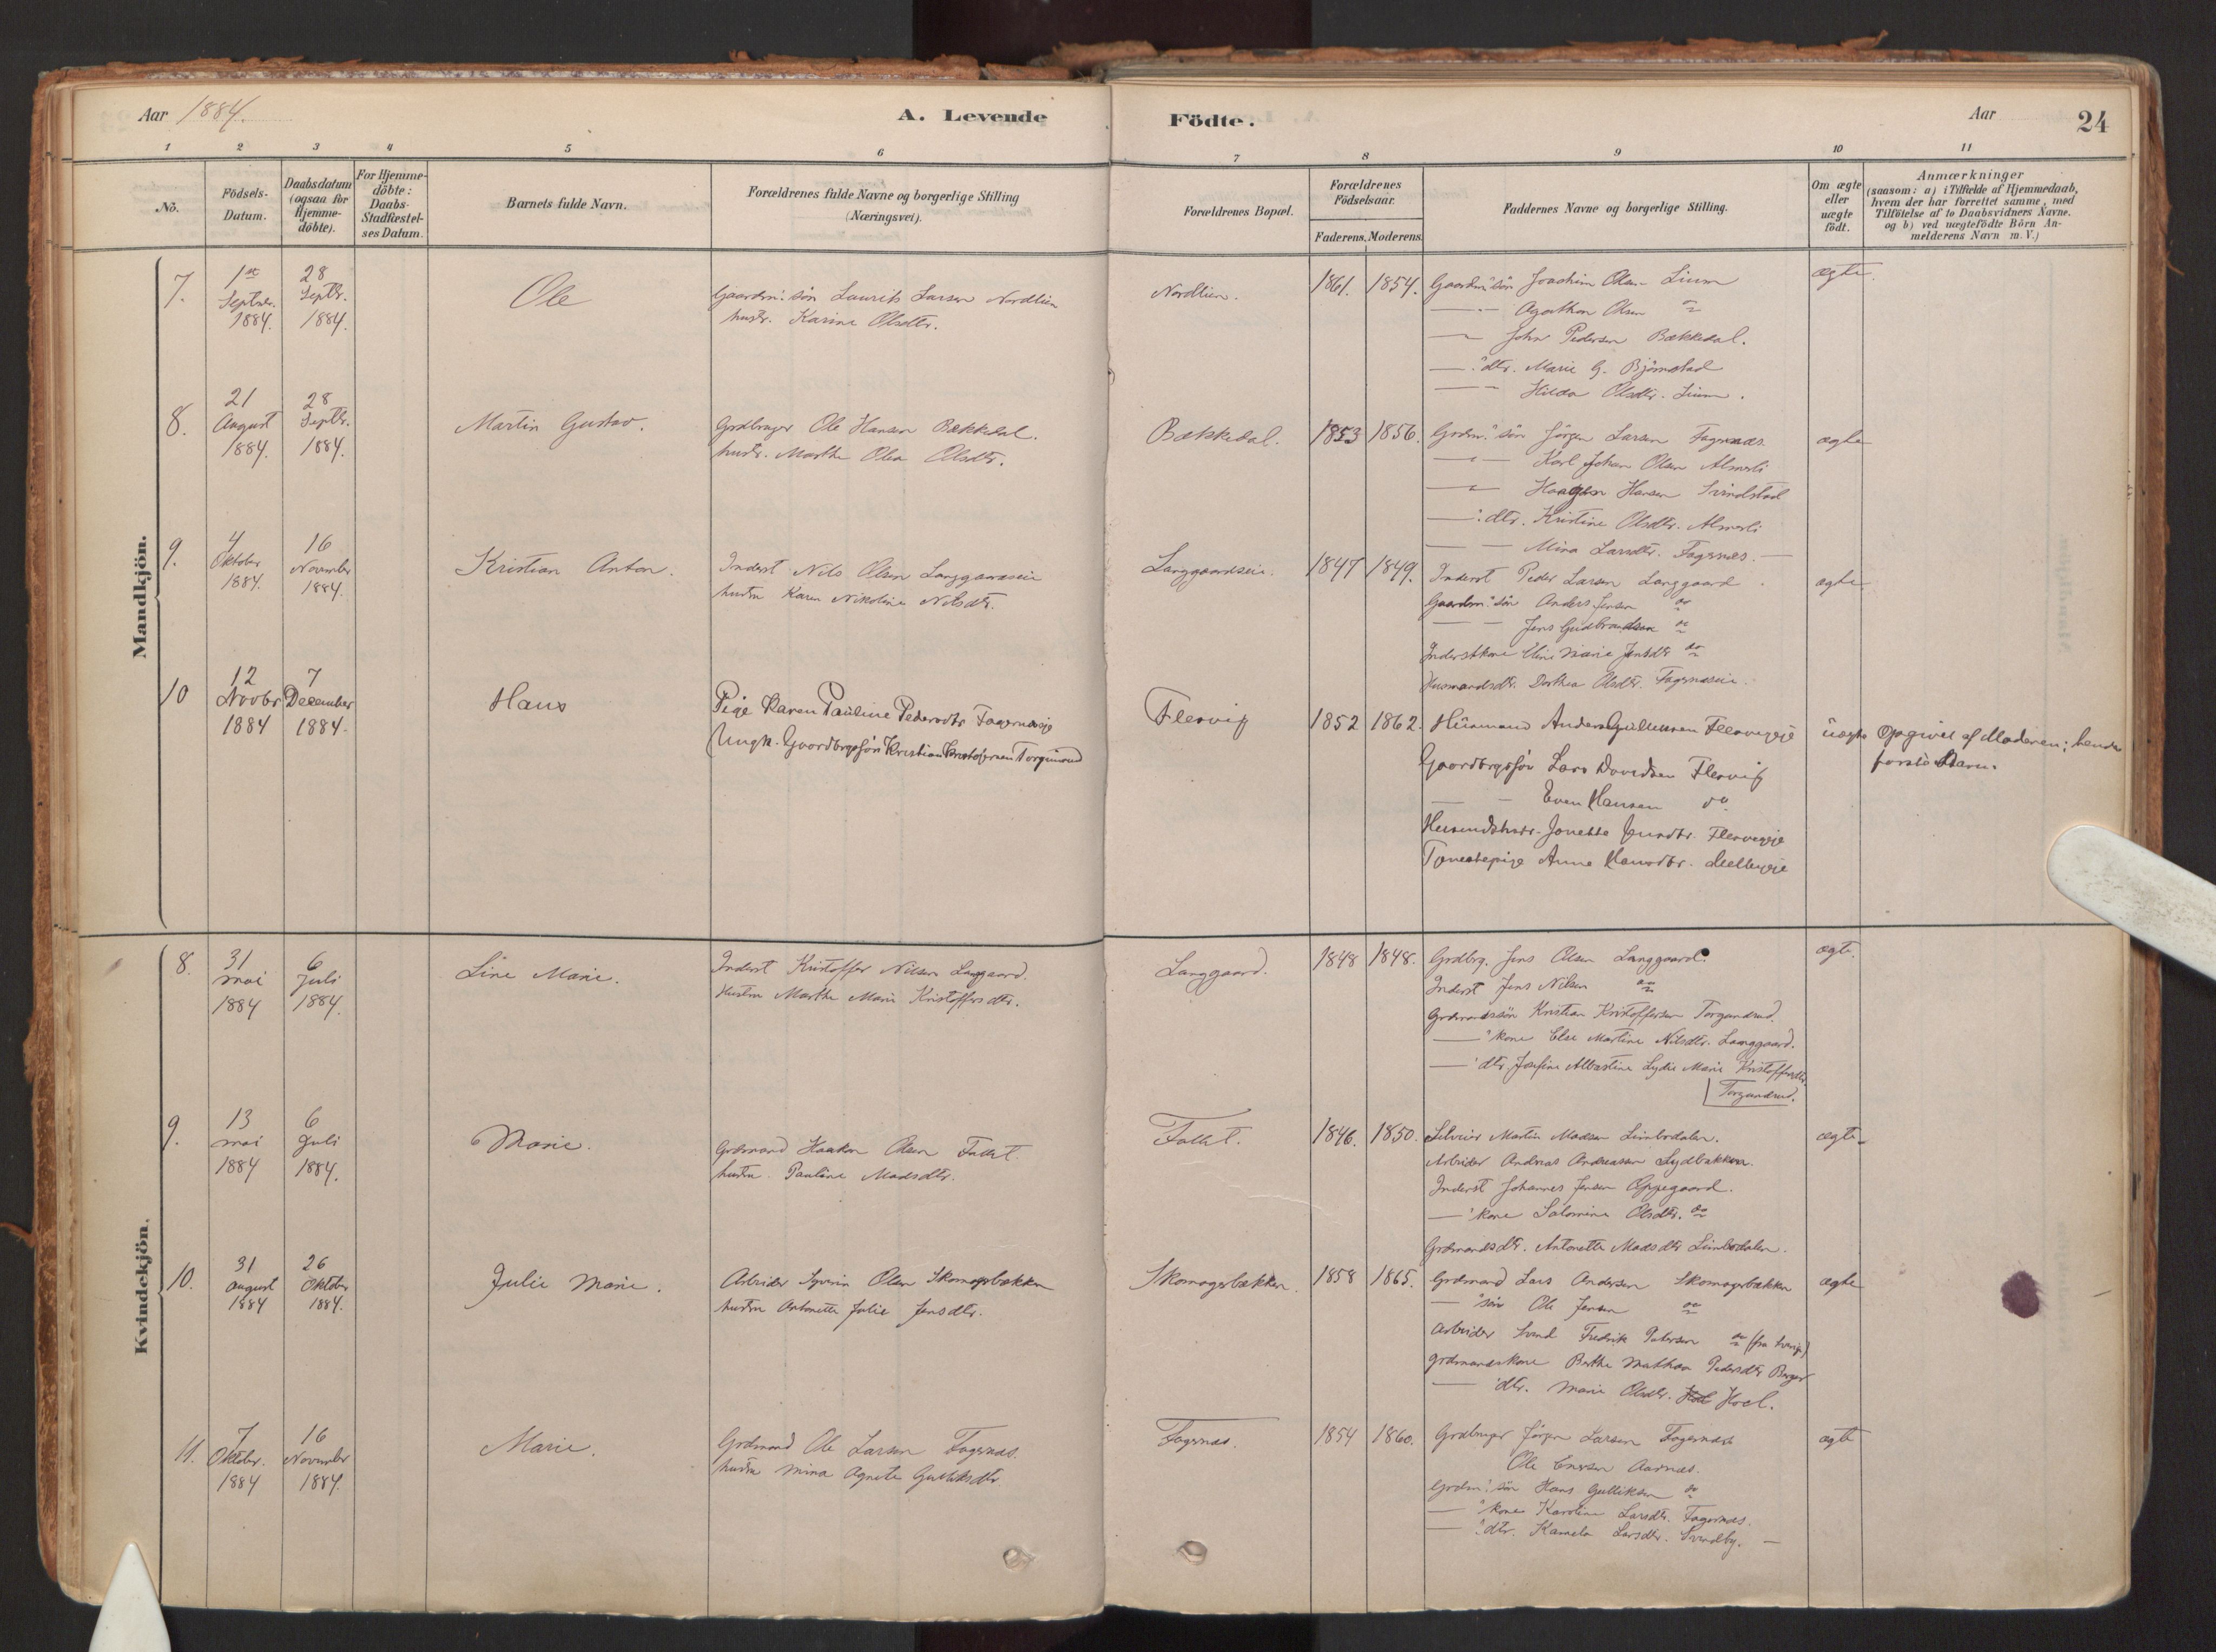 Aar 1884.
A. Levende
Födte.
Aar
24
1 2 3 4 5 6 7 8 9 10 11
No.
Födsels-
Datum.
Daabsdatum
(ogsaa for
Hjemme-
döbte).
For Hjemme-
döbte:
Daabs-
Stadfæstel-
ses Datum.
Barnets fulde Navn.
Forældrenes fulde Navne og borgerlige Stilling
(Næringsvei).
Forældrenes Bopæl.
Forældrenes
Födselsaar.
Faderens. Moderens.
Faddernes Navne og borgerlige Stilling.
Om ægte
eller
uægte
födt.
Anmærkninger
(saasom: a) i Tilfælde af Hjemmedaab,
hvem der har forrettet samme, med
Tilföielse af to Daabsvidners Navne.
og b) ved uægtefödte Börn An-
melderens Navn m. V.)
Mandkjön.
7.
1ste
Septbr.
1884.
28
Septbr.
1884.
Ole
Gaardm: sön Laurits Larsen Nordlien
hustr. Karine Olsdtr.
Nordlien.
1861. 1854.
Gaardm: sön Joachim Olsen Lium
— Agathon Olsen do
— John Pedersen Bækkedal.
— :dtr. Marie G. Björnstad
— Hilda Olsdtr. Lium.
ægte.
8.
21
August
1884.
28
Septbr.
1884.
Martin Gustav.
Grdbruger Ole Hansen Bækkedal.
hustr. Marthe Olea Olsdtr.
Bækkedal.
1853 1856.
Grdm: sön Jörgen Larsen Fagernæs
— Karl Johan Olsen Almerli
— Haagen Hansen Svindstad
— :dtr. Kristine Olsdtr. Almerli
— Mina Larsdtr. Fagernæs. —
ægte
9.
4
Oktober
1884.
16
November
1884.
Kristian Anton.
Inderst Nils Olsen Langgaardseie
hustru Karen Nikoline Nilsdtr.
Langgaardseie.
1847 1849.
Inderst Peder Larsen Langgaard
Gaardm: sön Anders Jensen do
— Jens Gudbrandsen do
Inderstkone Eline Marie Jensdtr do
Husmandsdtr. Dorthea Olsdtr. Fagernæseie.
ægte
10
12
Novbr
1884
7
December
1884.
Hans
Pige Karen Pauline Pedersdtr Fagernæseje
Ungk. Gaardbrgssön Kristian Kristofersen Torgunrud
Flesvig
1852 1862.
Husmand Anders Gulliksen Flesvigeje
Gaardbrgssön Lars Davidsen Flesvig
— Even Hansen do
Husmdshstr. Jonette Flesvigeje
Tjenestepige Anne Hansdtr.
uægte
Opgivet af Moderen; hendes
første Barn.
Kvindekjön.
8.
31
mai
1884
6
Juli
1884.
Line Marie.
Inderst Kristoffer Nilsen Langgaard.
Hustru Marthe Marie Kristoffersdtr.
Langgaard.
1848 1848.
Grdbrg. Jens Olsen Langgaard.
Inderst Jens Nilsen do
Grdmandssön Kristian Kristoffersen Torgunrud.
— :kone Else Martine Nilsdtr. Langgaard.
— :dtr. Josefine Albertine Lydie Marie Kristoffersdtr.
Torgunrud.
ægte.
9.
13
mai
1884
6
Juli
1884.
Marie.
Grdmand Haakon Olsen Falkt
hustru. Pauline Madsdtr.
Falkt.
1846. 1850.
Selveier Martin Madsen Limbodalen.
Arbeider Andreas Andreassen Lydbakken.
Inderst Johannes Jensen Oppegaard.
— :kone Salomine Olsdtr. do
Grdmandsdtr. Antonette Madsdtr Limbodalen.
ægte
10.
31
august
1884
26
Oktober
1884.
Julie Marie.
Arbeider Syverin Olsen Skomagerbakken
hustru Antonette Julie Jensdtr.
Skomagerbakken.
1858 1865.
Grdmand Lars Andersen Skomagerbakken
— :sön Ole Jensen do
Arbeider Svend Fredrik Petersen do
grdmandskone Berthe Mathea Pedersdtr Berger
— :dtr. Marie Olsdtr. Hoel.
ægte
11.
7
Oktober.
1884
16
November
1884.
Marie.
Grdmand Ole Larsen Fagernæs.
hustru Mina Agnete Gulliksdtr
Fagernæs.
1854 1860.
Grdbruger Jörgen Larsen Fagernæs
Ole Enersen Aarnæs.
Grdm: sön Hans Gulliksen do
— :kone Karoline Larsdtr. Fagernæs.
— :dtr. Kamela Larsdtr. Svendby. —
ægte